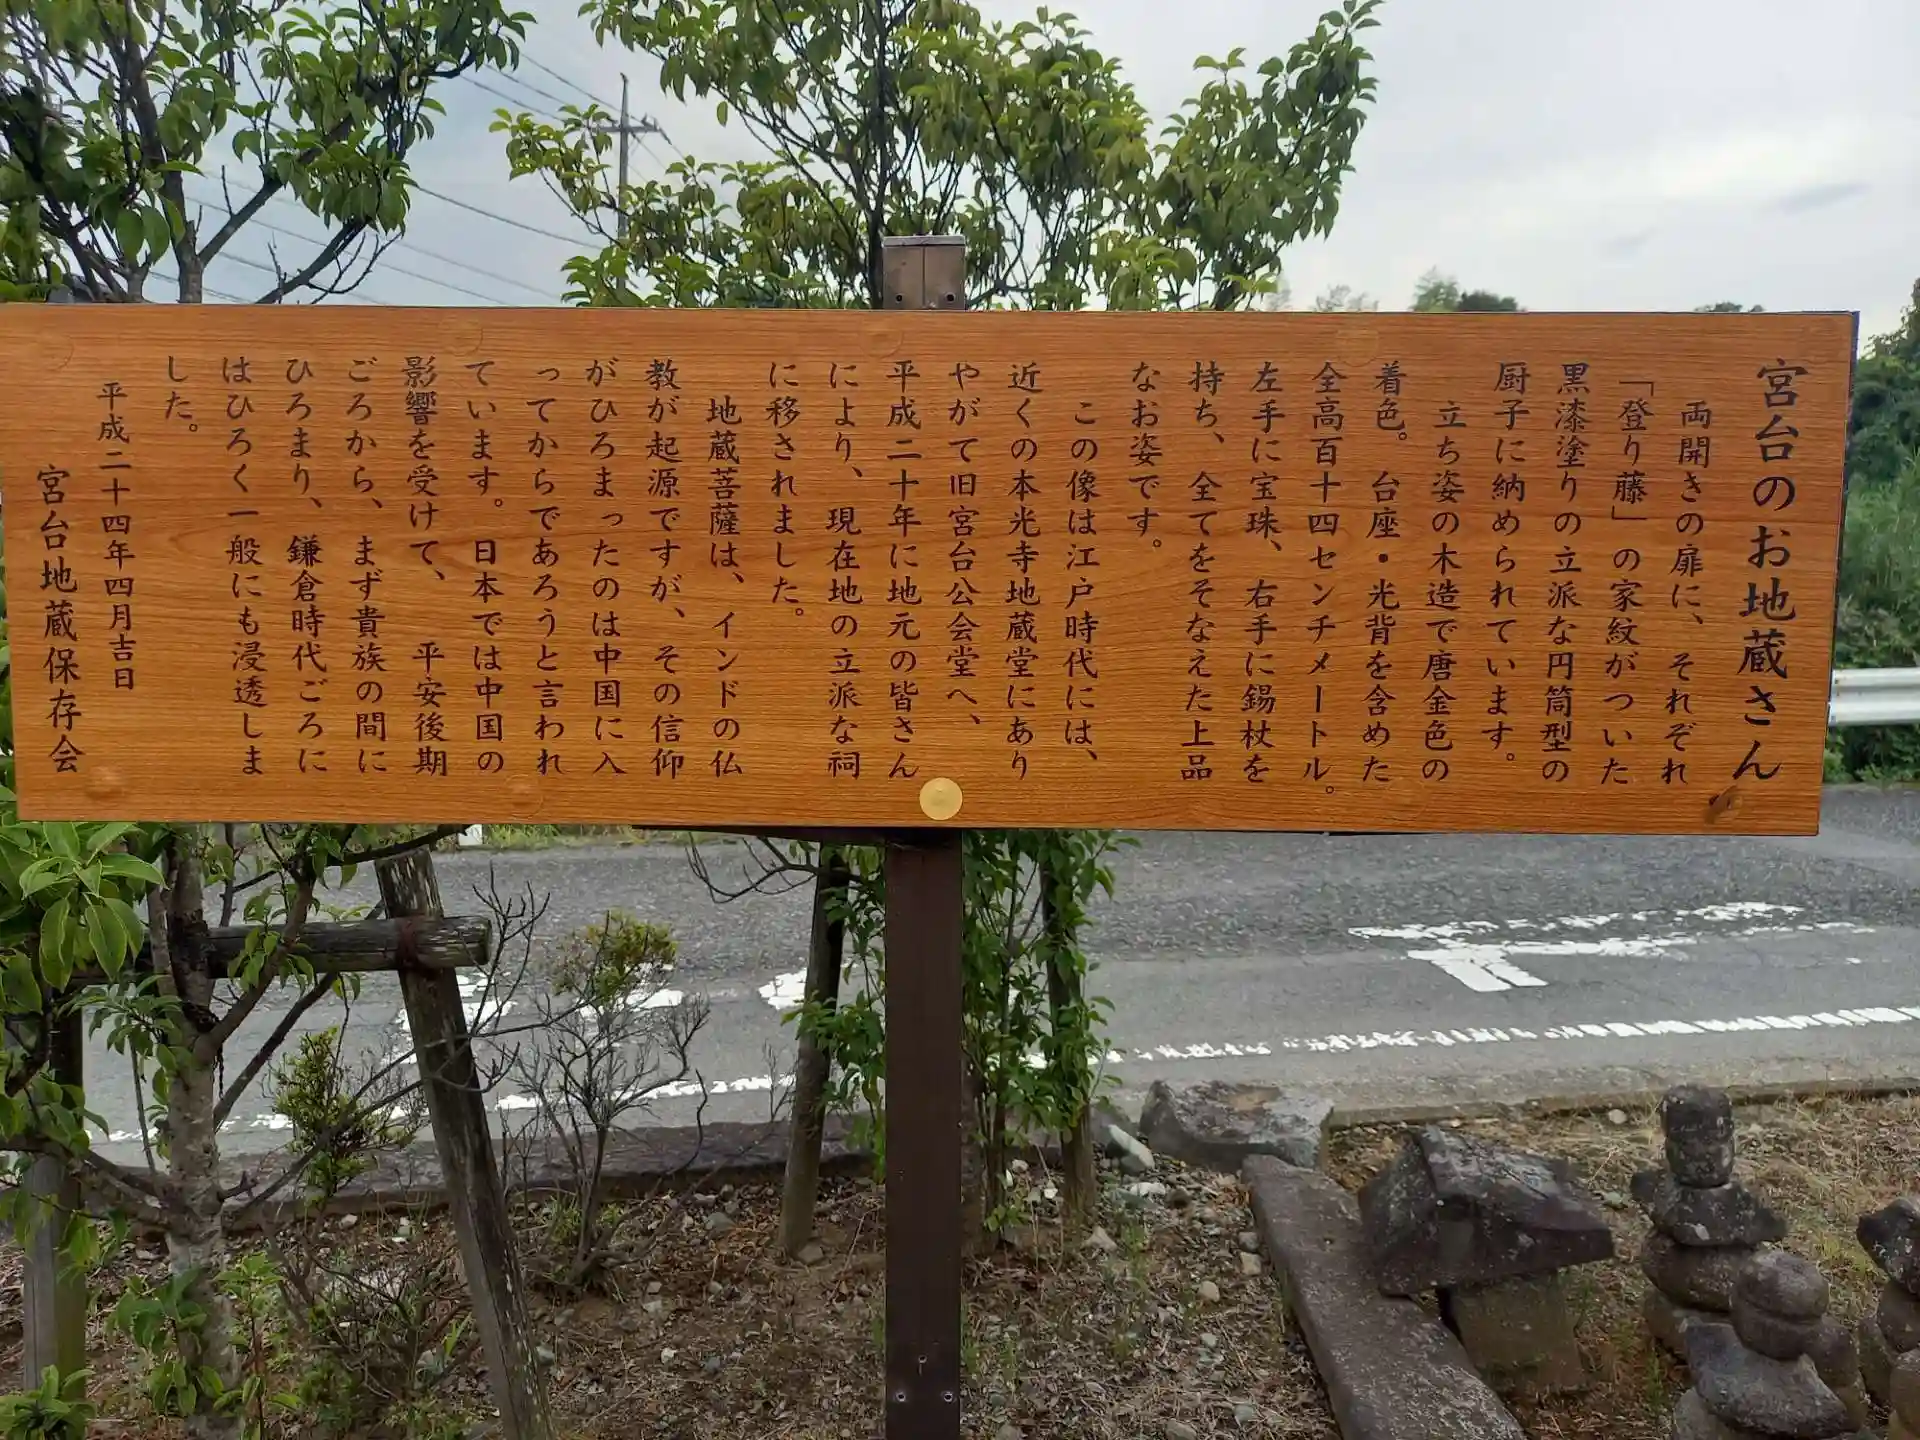 宮台のお地蔵さん
両開きの扉に、それぞれ
「登り藤」の家紋がついた
黒漆塗りの立派な円筒型の
厨子に納められています。
立ち姿の木造で唐金色の
着色。台座・光背を含めた
全高百十四センチメートル。
左手に宝珠、右手に錫杖を
持ち、全てをそなえた上品
なお姿です。
この像は江戸時代には、
近くの本光寺地蔵堂にあり
やがて旧宮台公会堂へ、
平成二十年に地元の皆さん
により、現在地の立派な祠
に移されました。
地蔵菩薩は、インドの仏
教が起源ですが、その信仰
がひろまったのは中国に入
ってからであろうと言われ
ています。日本では中国の
影響を受けて、平安後期
ごろから、まず貴族の間に
ひろまり、鎌倉時代ごろに
はひろく一般にも浸透しま
した。
平成二十四年四月吉日
宮台地蔵保存会